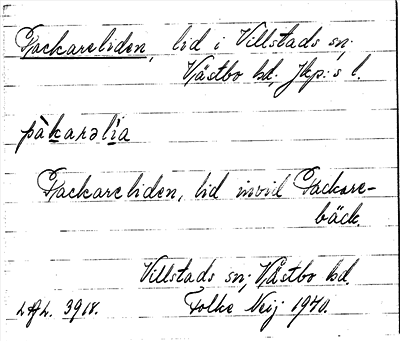 Packareliden, lid i Villstads sn;
Västbo hd; Jkp:s l.
pàkarəlia
Packareliden, lid invid Packare-
bäck.
Villstads sn; Västbo hd.
Folke Neij 1940.
3918.